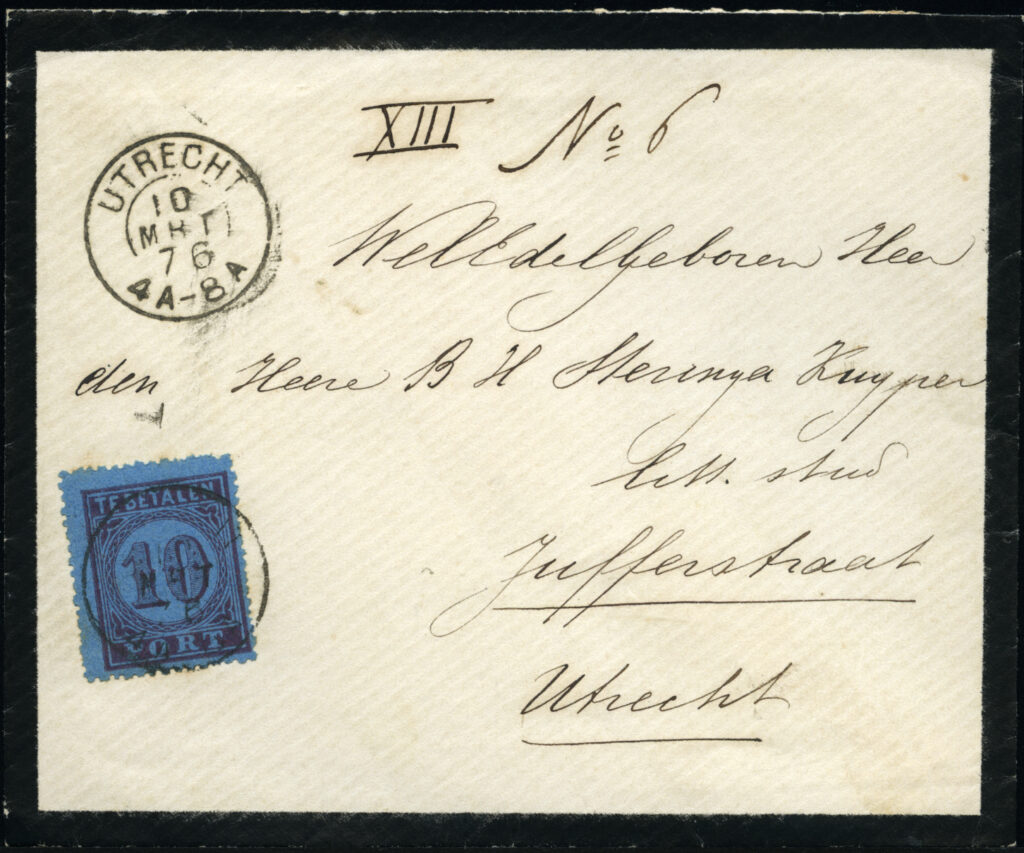 XIII No 6
UTRECHT
10
MRT
76
4A-8A
WelEdelGeboren Heer
den Heere B H Steringa Kuyper
Litt. stud
Jufferstraat
Utrecht
TE BETALEN
10
PORT